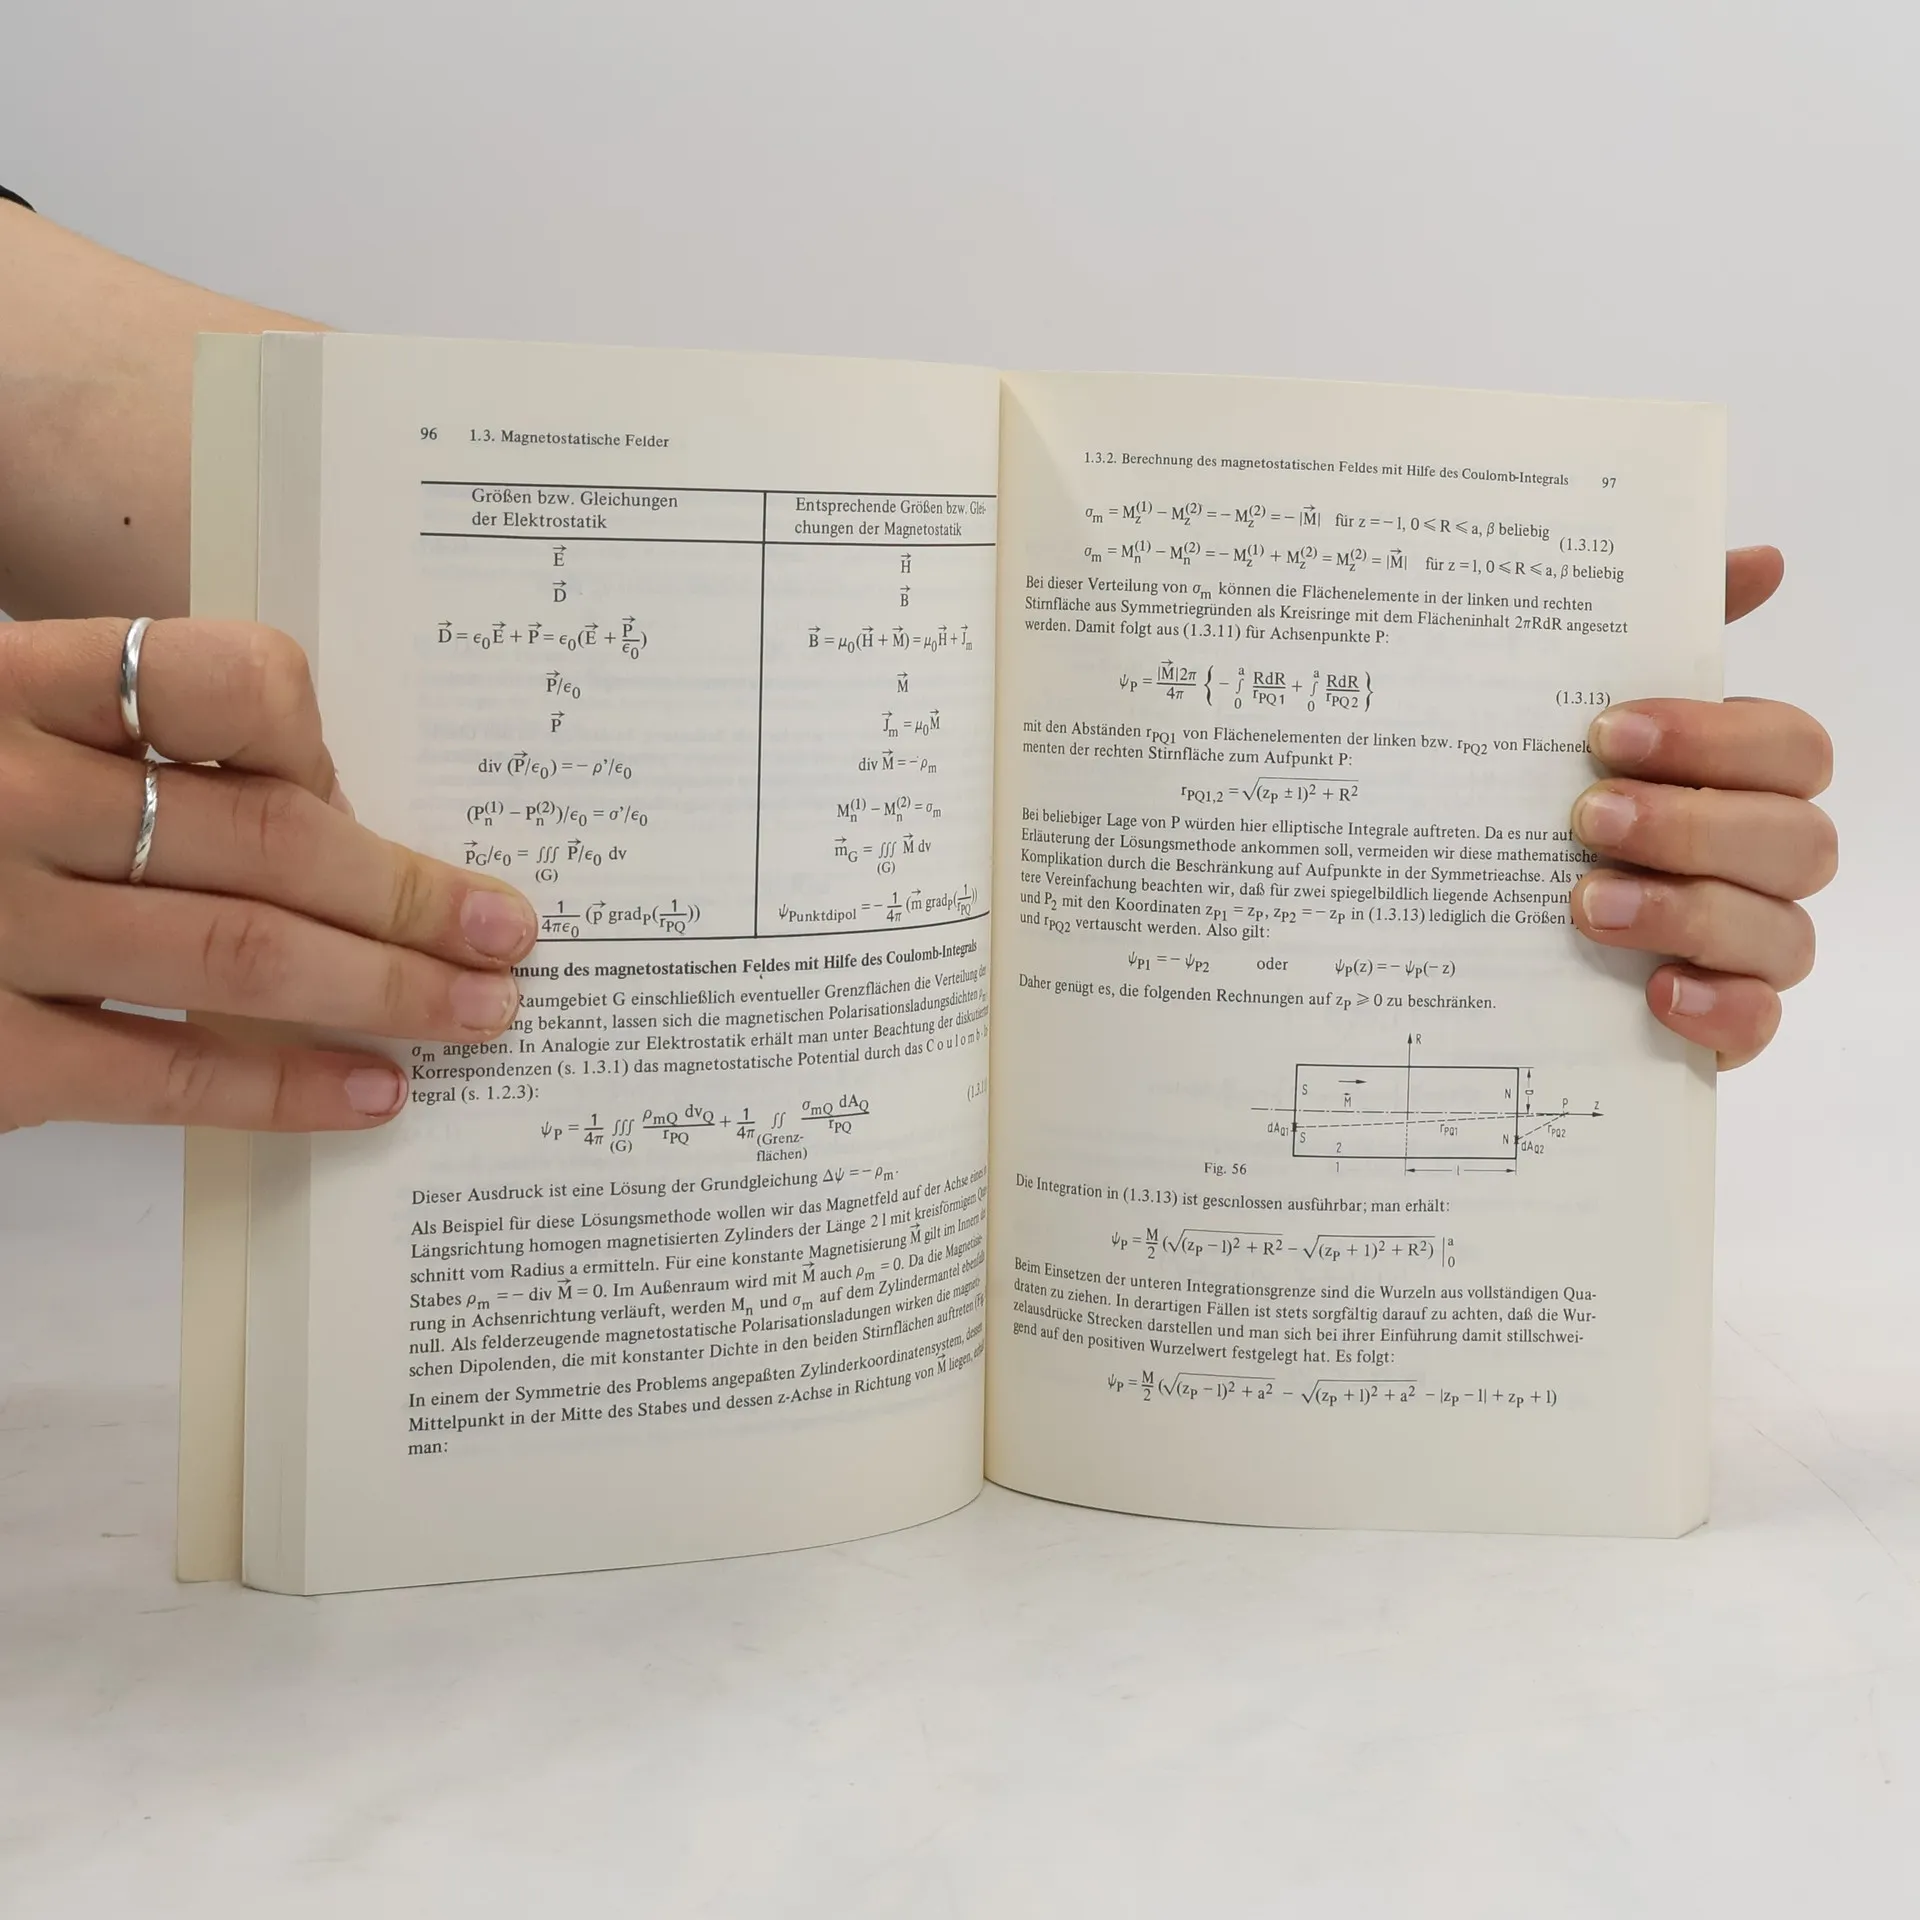 96 1.3. Magnetostatische Felder
Größen bzw. Gleichungen
der Elektrostatik
Entsprechende Größen bzw. Glei-
chungen der Magnetostatik
E⃗ H⃗
D⃗ B⃗
D⃗ = ϵ₀E⃗ + P⃗ = ϵ₀(E⃗ + P⃗/ϵ₀) B⃗ = μ₀(H⃗ + M⃗) = μ₀H⃗ + J⃗m
P⃗/ϵ₀ M⃗
P⃗ J⃗m = μ₀M⃗
div (P⃗/ϵ₀) = − ρ'/ϵ₀ div M⃗ = − ρm
(Pn(1) − Pn(2))/ϵ₀ = σ'/ϵ₀ Mn(1) − Mn(2) = σm
p⃗G/ϵ₀ = ∭ P⃗/ϵ₀ dv m⃗G = ∭ M⃗ dv
(G) (G)
1/4πϵ₀ (p⃗ gradP(1/rPQ)) ψPunktdipol = − 1/4π (m⃗ gradP(1/rPQ))
hnung des magnetostatischen Feldes mit Hilfe des Coulomb-Integrals
Raumgebiet G einschließlich eventueller Grenzflächen die Verteilung der
ng bekannt, lassen sich die magnetischen Polarisationsladungsdichten ρm
σm angeben. In Analogie zur Elektrostatik erhält man unter Beachtung der diskutierten
Korrespondenzen (s. 1.3.1) das magnetostatische Potential durch das Coulomb-
tegral (s. 1.2.3):
ψP = 1/4π ∭ ρmQ dvQ/rPQ + 1/4π ∬ σmQ dAQ/rPQ
(G) (Grenz-
flächen)
Dieser Ausdruck ist eine Lösung der Grundgleichung Δψ = − ρm.
Als Beispiel für diese Lösungsmethode wollen wir das Magnetfeld auf der Achse eines
Längsrichtung homogen magnetisierten Zylinders der Länge 2 l mit kreisförmigem
schnitt vom Radius a ermitteln. Für eine konstante Magnetisierung M⃗ gilt im Innern
Stabes ρm = − div M⃗ = 0. Im Außenraum wird mit M⃗ auch ρm = 0. Da die
rung in Achsenrichtung verläuft, werden Mn und σm auf dem Zylindermantel ebenfalls
null. Als felderzeugende magnetostatische Polarisationsladungen wirken die
schen Dipolenden, die mit konstanter Dichte in den beiden Stirnflächen auftreten
In einem der Symmetrie des Problems angepaßten Zylinderkoordinatensystem, dessen
Mittelpunkt in der Mitte des Stabes und dessen z-Achse in Richtung von M⃗ liegen,
man:
1.3.2. Berechnung des magnetostatischen Feldes mit Hilfe des Coulomb-Integrals 97
σm = Mz(1) − Mz(2) = − Mz(2) = − |M⃗| für z = − l, 0 ⩽ R ⩽ a, β beliebig
(1.3.12)
σm = Mn(1) − Mn(2) = − Mz(1) + Mz(2) = Mz(2) = |M⃗| für z = l, 0 ⩽ R ⩽ a, β beliebig
Bei dieser Verteilung von σm können die Flächenelemente in der linken und rechten
Stirnfläche aus Symmetriegründen als Kreisringe mit dem Flächeninhalt 2πRdR angesetzt
werden. Damit folgt aus (1.3.11) für Achsenpunkte P:
ψP = |M⃗|2π/4π { − ∫₀ᵃ RdR/rPQ1 + ∫₀ᵃ RdR/rPQ2 } (1.3.13)
mit den Abständen rPQ1 von Flächenelementen der linken bzw. rPQ2 von Flächenele
menten der rechten Stirnfläche zum Aufpunkt P:
rPQ1,2 = √((zP ± l)² + R²)
Bei beliebiger Lage von P würden hier elliptische Integrale auftreten. Da es nur auf
Erläuterung der Lösungsmethode ankommen soll, vermeiden wir diese mathematische
Komplikation durch die Beschränkung auf Aufpunkte in der Symmetrieachse. Als
tere Vereinfachung beachten wir, daß für zwei spiegelbildlich liegende Achsenpun
und P₂ mit den Koordinaten zP1 = zP, zP2 = − zP in (1.3.13) lediglich die Größen
und rPQ2 vertauscht werden. Also gilt:
ψP1 = − ψP2 oder ψP(z) = − ψP(− z)
Daher genügt es, die folgenden Rechnungen auf zP ⩾ 0 zu beschränken.
R
S M⃗ N a P z
dAQ1 S rPQ1 N rPQ2 dAQ2
2
1 l
Fig. 56
Die Integration in (1.3.13) ist geschlossen ausführbar; man erhält:
ψP = M/2 (√((zP − l)² + R²) − √((zP + l)² + R²)) |₀ᵃ
Beim Einsetzen der unteren Integrationsgrenze sind die Wurzeln aus vollständigen Qua-
draten zu ziehen. In derartigen Fällen ist stets sorgfältig darauf zu achten, daß die Wur-
zelausdrücke Strecken darstellen und man sich bei ihrer Einführung damit stillschwei-
gend auf den positiven Wurzelwert festgelegt hat. Es folgt:
ψP = M/2 (√((zP − l)² + a²) − √((zP + l)² + a²) − |zP − l| + zP + l)